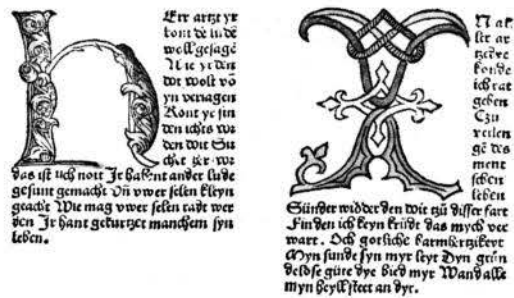 Err artzt yr
kont dē ludē
woll gesagē
Nie yr den
dot wolt vō
yn veriagen
Kont ye sin
den ichts wr
den dot Su
chet
das ist uch noit Ir habent ander lude
gesunt gemacht Vn̄ vwer selen kleyn
geacht Wie mag vwer selen radt wer
den Ir hant gekurtzet manchem syn
leben.
N al
ler ar
tzedye
konde
ich rat
geben
Czu
verlen
gē des
ment
schen
leben
Sünder widder den doit tzü disser fart
Finden ich keyn krüdt das mych vee
wart. Och gotliche barmhertzikeyt
Myn sunde syn myr leyt Dyn grün
delose güte dye bied myr Wand alle
myn heyll steet an dyr.